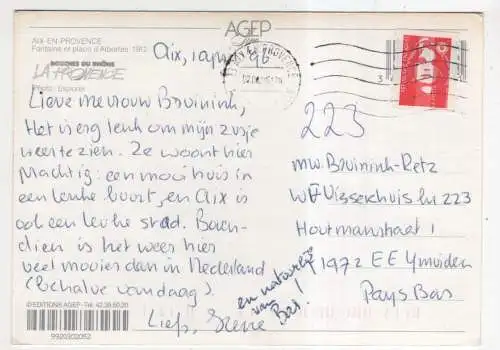 AGEP
AIX-EN-PROVENCE
Fontaine et place d'Albertas 1912
BOUCHES DU RHÔNE
LA PROVENCE
Photo: Explorer
Aix, 1 apr. 96
Lieve mevrouw Bruinink,
Het is erg leuk om mijn zusje
weer te zien. Ze woont hier
Machtig: een mooi huis in
een leuke buurt, en Aix is
ook een leuke stad. Boven-
dien is het weer hier
veel mooier dan in Nederland
(Behalve vandaag).
Liefs,
en natuurlijk
van Bas!
223
mw. Bruinink-Retz
W F Visserhuis 223
Houtmanstraat 1
1972 EE IJmuiden
Pays Bas
© EDITIONS AGEP - Tel. 42.39.50.20
9920302052